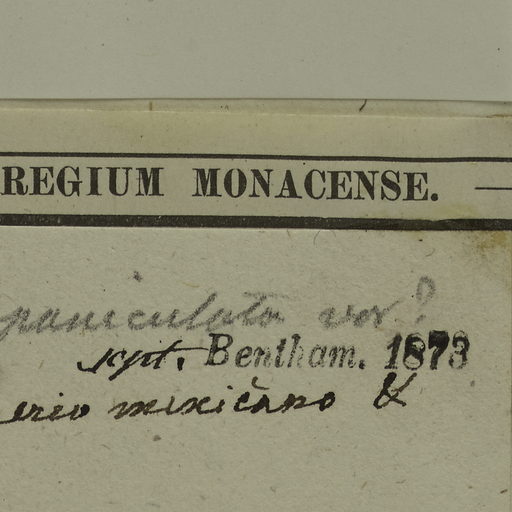 REGIUM MONACENSE. —
paniculata var?
scpt. Bentham. 1873
erio mexicano &